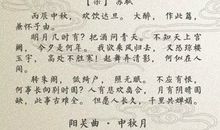 【宋】苏轼
丙辰中秋，欢饮达旦，大醉，作此篇，
兼怀子由。
明月几时有？把酒问青天。不知天上宫
阙，今夕是何年。我欲乘风归去，又恐琼楼
玉宇，高处不胜寒！起舞弄清影，何似在人
间。
转朱阁，低绮户，照无眠。不应有恨，
何事长向别时圆？人有悲欢离合，月有阴晴圆
缺，此事古难全。但愿人长久，千里共婵娟。
阳关曲·中秋月